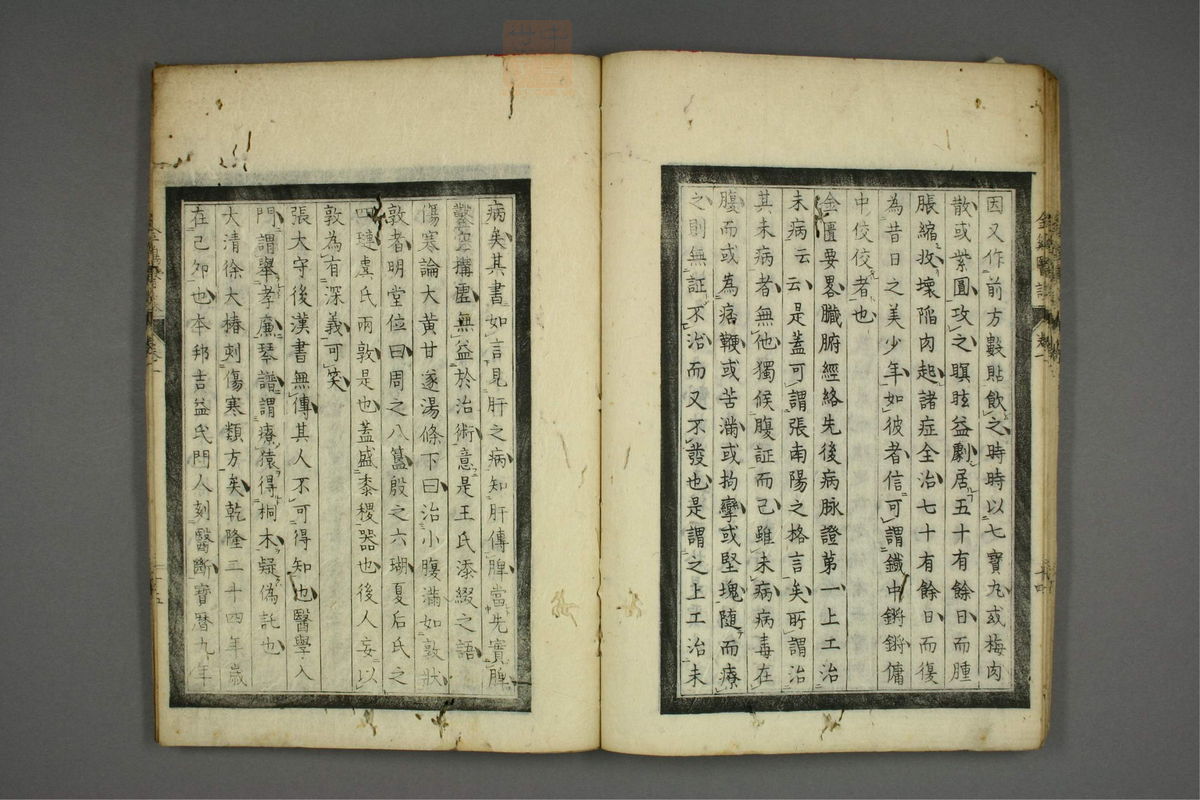 因又作前方數貼飲之時時以七寶丸或梅肉
散或紫圓攻之瞑眩益劇居五十有餘日而腫
脹縮收壞陷肉起諸症全治七十有餘日而復
為昔日之美少年如彼者信可謂鐵中錚錚傭
中佼佼者也
金匱要畧臟腑經絡先後病脉證第一上工治
未病云云是蓋可謂張南陽之格言矣所謂治
其未病者無他獨候腹証而已雖未病病毒在
腹而或為痞鞕或苦滿或拘攣或堅塊隨而療
之則無証不治而又不發也是謂之上工治未
病矣其書如言見肝之病知肝傳脾當先實脾
鑿空搆虛無益於治術意是王氏添綴之語
傷寒論大黃甘遂湯條下曰治小腹滿如敦狀
敦者明堂位曰周之八簋殷之六瑚夏后氏之
四璉虞氏兩敦是也蓋盛黍稷器也後人妄以
敦為有深義可笑
張大守後漢書無傳其人不可得知也醫學入
門謂舉孝廉琴譜謂療猿得桐木疑偽託也
大清徐大椿刻傷寒類方矣乾隆二十四年歲
在己卯也本邦吉益氏門人刻醫斷寶曆九年